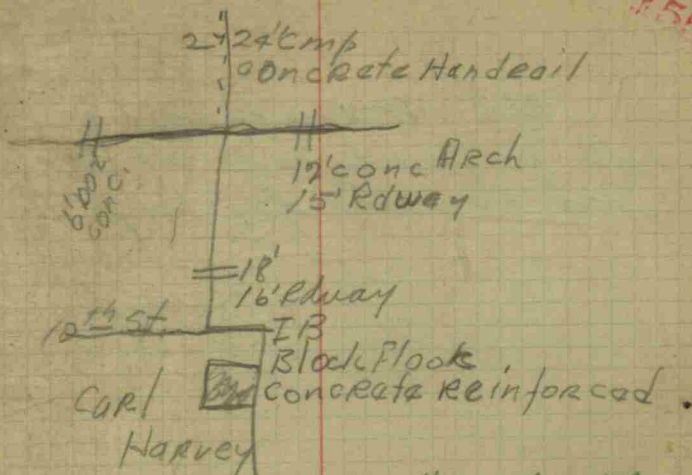 24' Cmp
Concrete Handrail
12' conc Arch
15' Rdway
6' Box
conc.
18'
16' Rdway
12th St
IB
Block Floor
Concrete Reinforced
Carl
Harvey